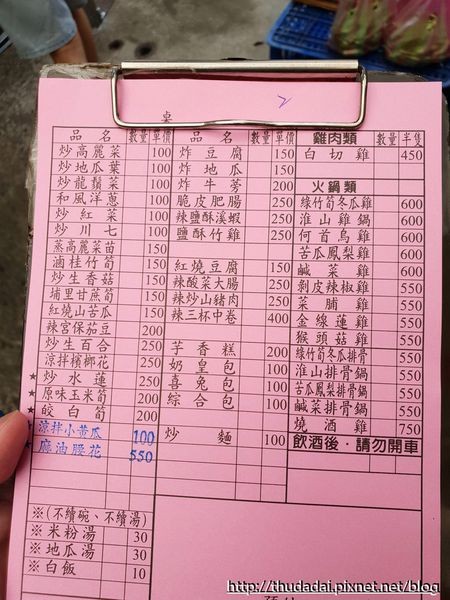 卓
品名 數量 單價
炒高麗菜 100
炒地瓜葉 100
炒龍鬚菜 100
和風洋蔥 100
炒紅菜 100
炒川七 100
蒸高麗菜苗 150
滷桂竹筍 150
炒生香菇 150
埔里甘蔗筍 150
紅燒山苦瓜 150
辣宮保茄豆 200
炒生百合 250
涼拌檳榔花 250
★ 炒水蓮 250
★ 原味玉米筍 200
★ 皎白筍 200
★ 涼拌小黃瓜 100
★ 麻油腰花 550
※(不續碗、不續湯)
※米粉湯 30
※地瓜湯 30
※白飯 10
品名 數量 單價
炸豆腐 150
炸地瓜 150
炸牛蒡 200
脆皮肥腸
辣鹽酥溪蝦
鹽酥竹雞
紅燒豆腐
辣酸菜大腸
辣炒山豬肉
辣三杯中卷 400
芋香糕 200
奶皇包
喜兔包
綜合包 100
炒麵 100
雞肉類 數量 半隻
白切雞 450
火鍋類
綠竹筍冬瓜雞 600
淮山雞鍋 600
何首烏雞 600
苦瓜鳳梨雞 600
鹹菜雞 600
剝皮辣椒雞 550
菜脯雞 550
金線蓮雞 550
猴頭菇雞 550
綠竹筍冬瓜排骨 550
淮山排骨鍋 550
苦瓜鳳梨排骨鍋 550
鹹菜排骨鍋 550
燒酒雞 750
飲酒後·請勿開車
http://thudadai.pixnet.net/blog